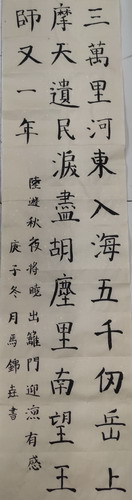 三萬里河東入海五千仞岳上
摩天遺民淚盡胡塵里南望王
師又一年
陸遊秋夜將曉出籬門迎涼有感
庚子冬月馬錦垚書